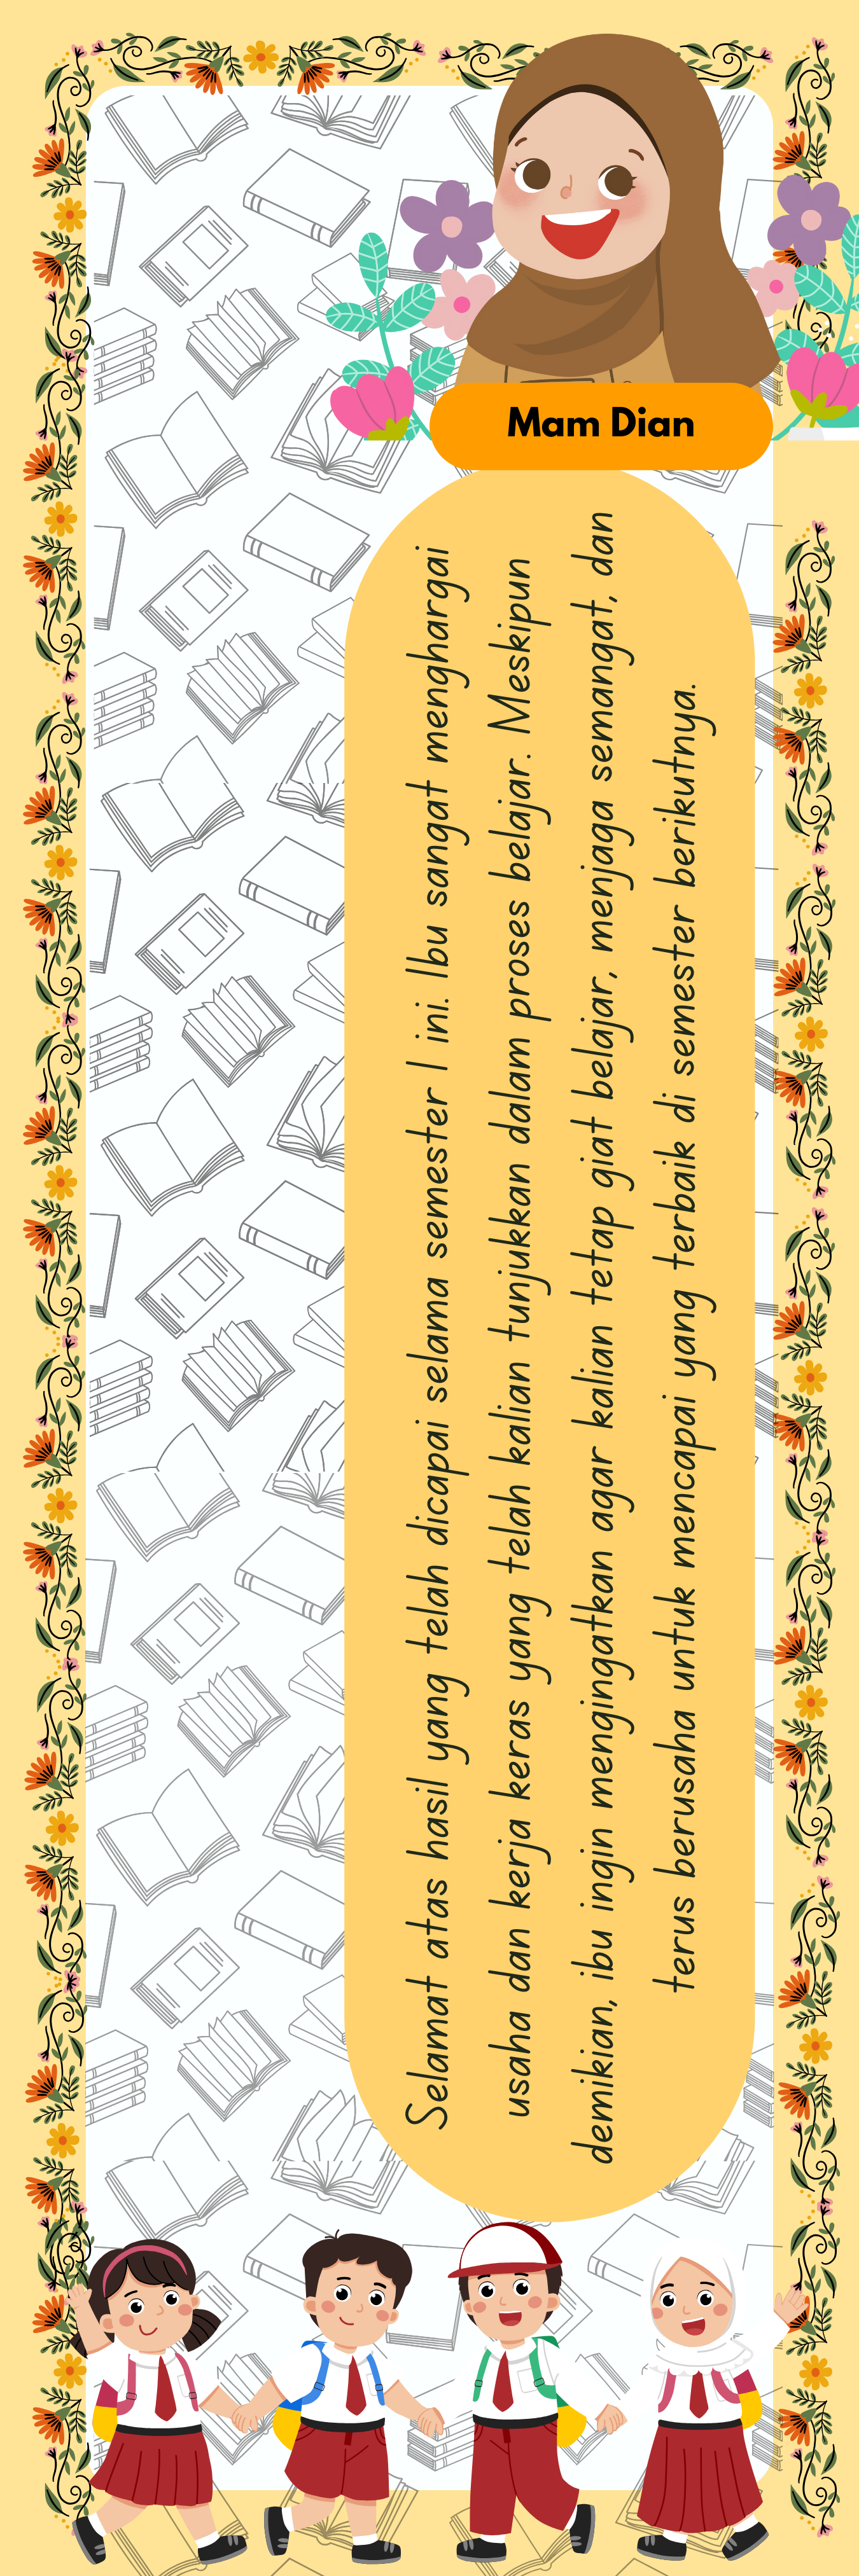 Mam Dian
Selamat atas hasil yang telah dicapai selama semester I ini. Ibu sangat menghargai
usaha dan kerja keras yang telah kalian tunjukkan dalam proses belajar. Meskipun
demikian, ibu ingin mengingatkan agar kalian tetap giat belajar, menjaga semangat, dan
terus berusaha untuk mencapai yang terbaik di semester berikutnya.